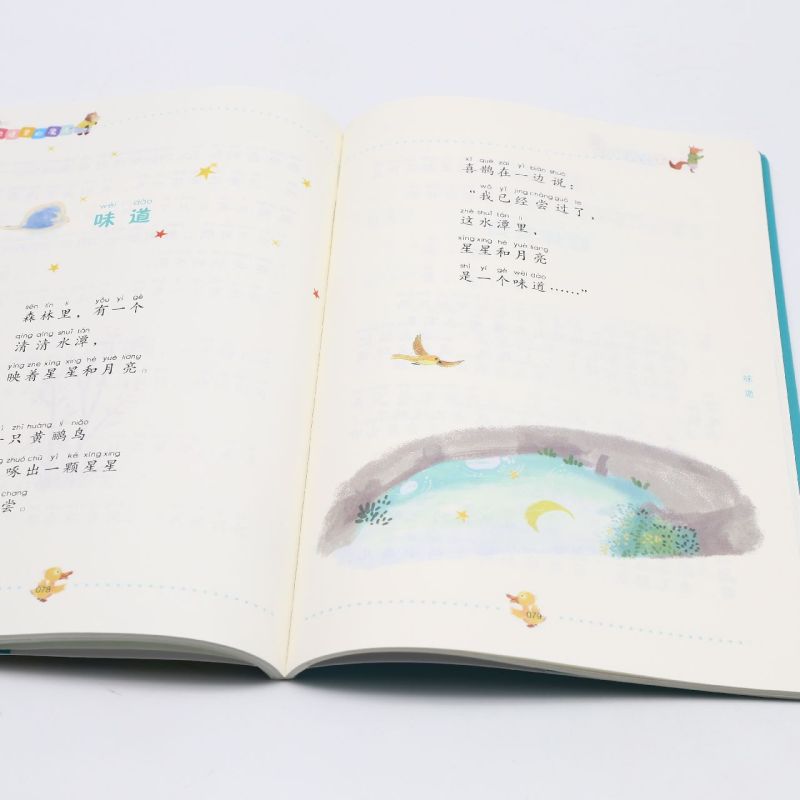 wèi dào
味道
sēn lín lǐ yǒu yí gè
森林里，有一个
qīng qīng shuǐ tán
清清水潭，
yìng zhe xīng xing hé yuè liang
映着星星和月亮。
zhī huáng lí niǎo
一只黄鹂鸟
zhuó chū yì kē xīng xing
啄出一颗星星
chang
尝。
078
xǐ que zài yì biān shuō
喜鹊在一边说：
wǒ yǐ jīng cháng guò le
“我已经尝过了，
zhè shuǐ tán lǐ
这水潭里，
xīng xing hé yuè liang
星星和月亮
shì yí gè wèi dào
是一个味道……”
味道
079